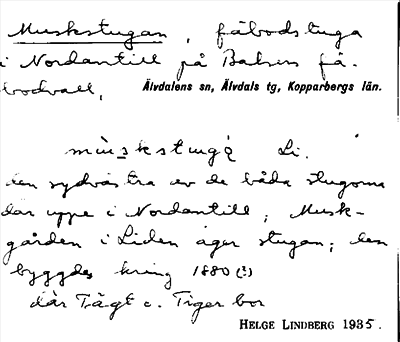 Muskstugan, fäbodstuga
i Nordantill på Balsen få-
bodvall,
Älvdalens sn, Älvdals tg, Kopparbergs län.
Li.
den sydvästra av de båda stugorna
där uppe i Nordantill; Musk-
gården i Liden äger stugan; den
byggdes kring 1880 (?)
där Tägt o. Tiger bor
HELGE LINDBERG 1935.